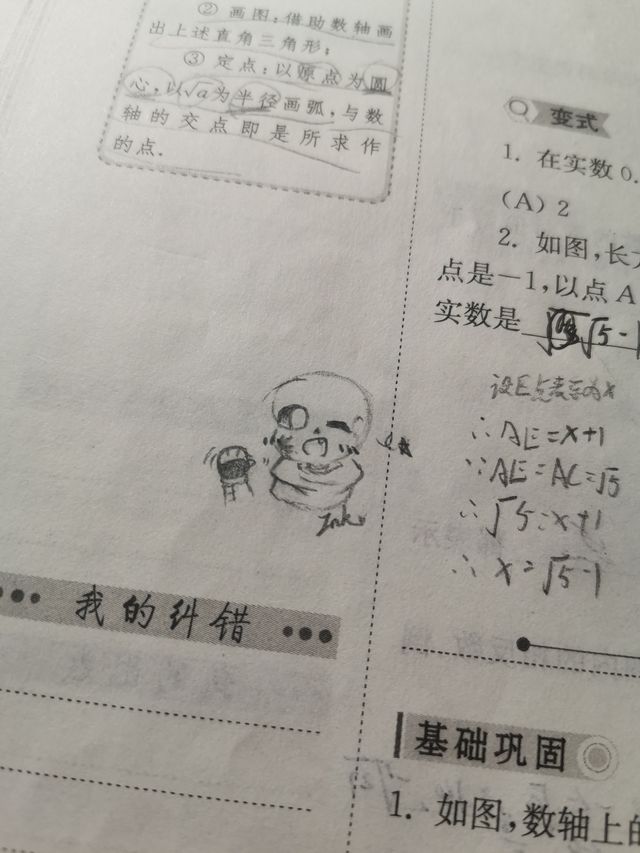 ② 画图：借助数轴画
出上述直角三角形；
③ 定点：以原点为圆
心，以√a为半径画弧，与数
轴的交点即是所求作
的点.
Ink
我的纠错
变式
1. 在实数 0.
(A) 2
2. 如图，长方
点是－1，以点 A
实数是 √5-1
设E点表示为x
∴AE=x+1
∵AE=AC=√5
∴√5=x+1
∴x=√5-1
基础巩固
1. 如图，数轴上的